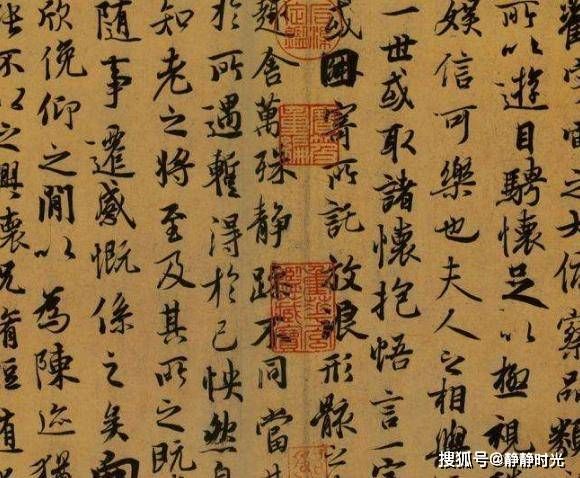 宇宙之大俯察品類
所以遊目騁懷足以極視
娛信可樂也夫人之相與
一世或取諸懷抱悟言一室
或因寄所託放浪形骸之
趣舍萬殊静躁不同當其
於所遇暫得於己怏然自
知老之將至及其所之既
隨事遷感慨係之矣向
欣俛仰之閒以為陳迹猶
能不以之興懷況脩短隨
搜狐号@静静时光